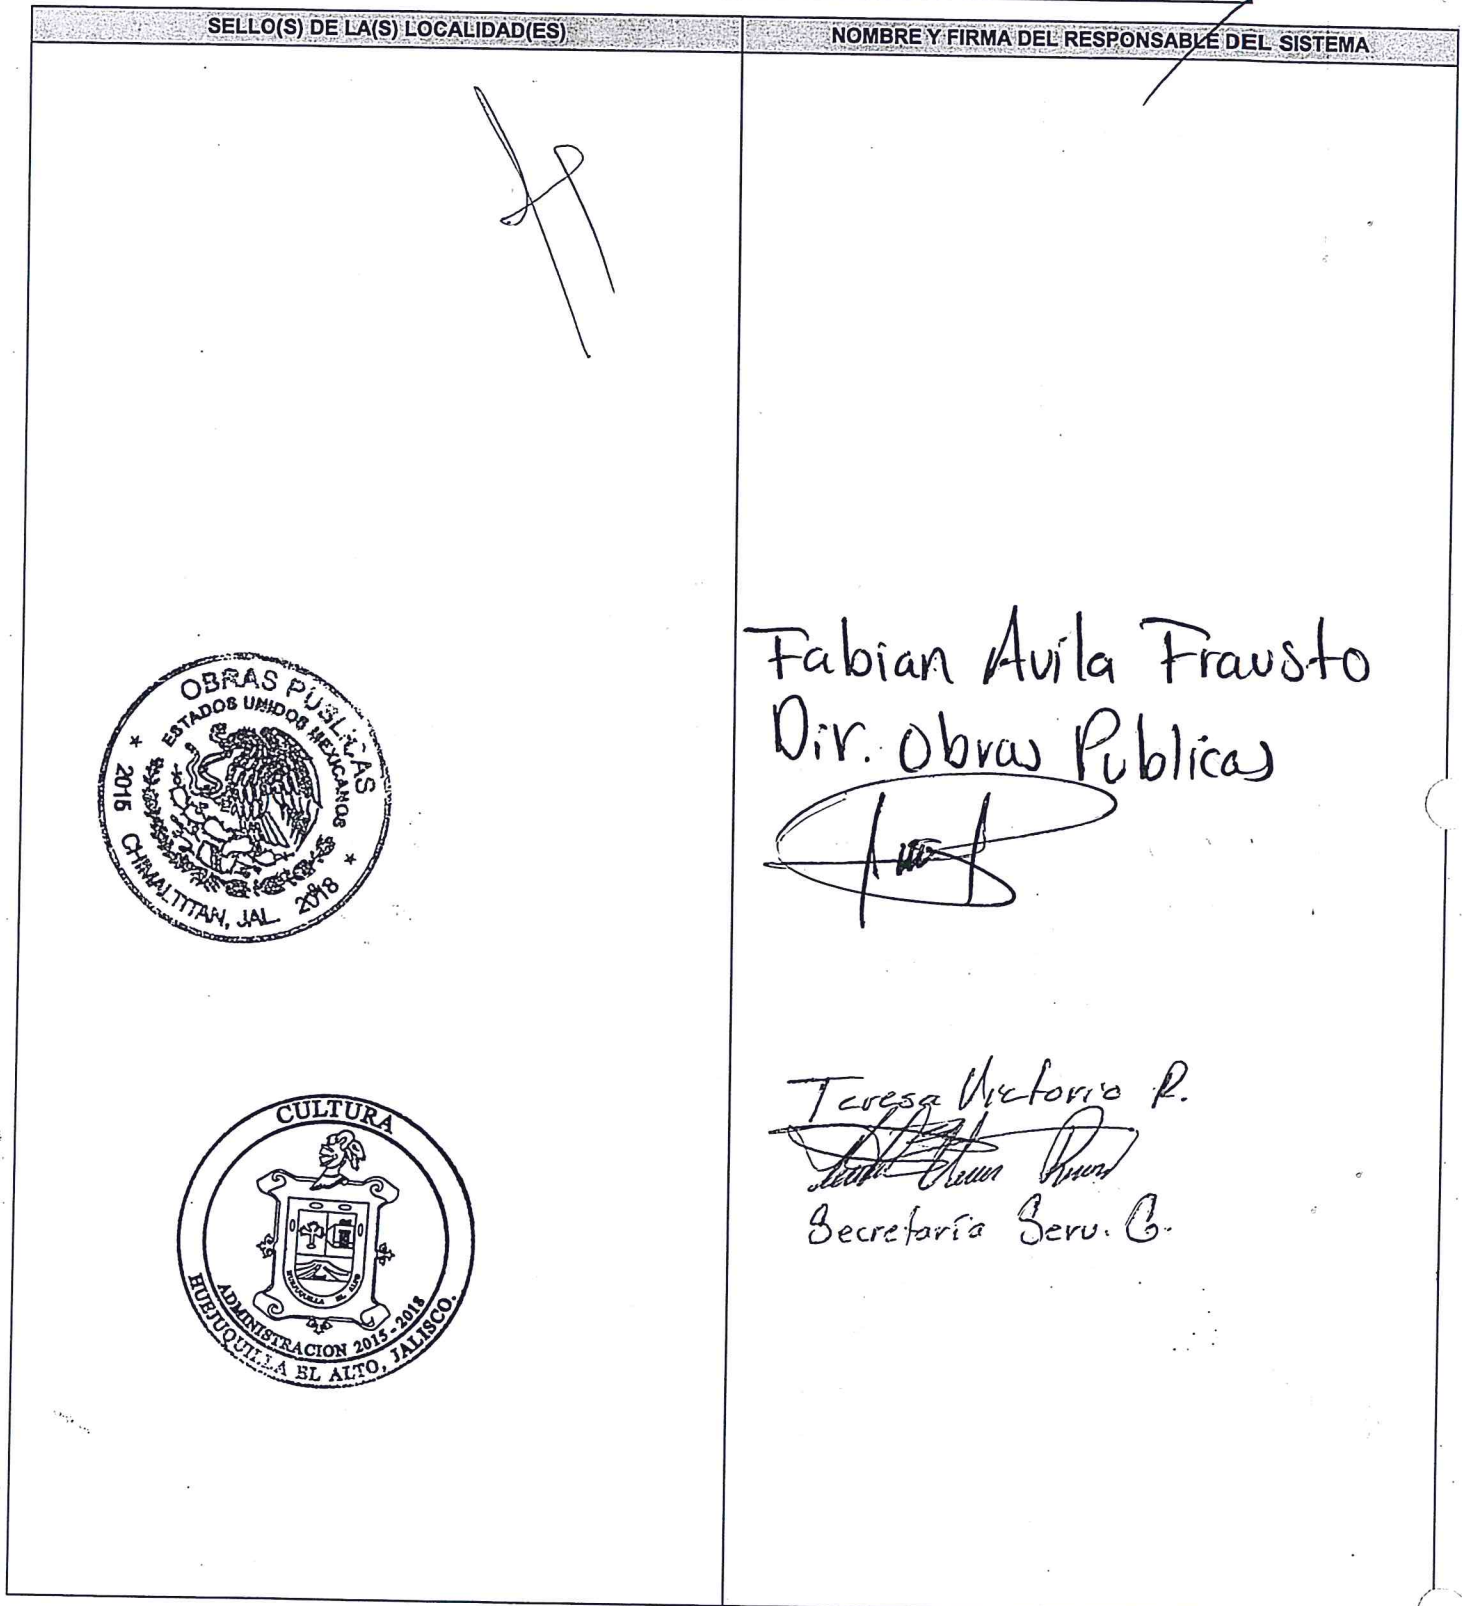 SELLO(S) DE LA(S) LOCALIDAD(ES)
NOMBRE Y FIRMA DEL RESPONSABLE DEL SISTEMA
OBRAS PUBLICAS
ESTADOS UNIDOS MEXICANOS
2015 CHIMALTITAN, JAL. 2018
Fabian Avila Frausto
Dir. Obras Publicas
CULTURA
HUEJUQUILLA EL ALTO
ADMINISTRACION 2015-2018
HUEJUQUILLA EL ALTO, JALISCO.
Teresa Victorio R.
Secretaría Serv. G.